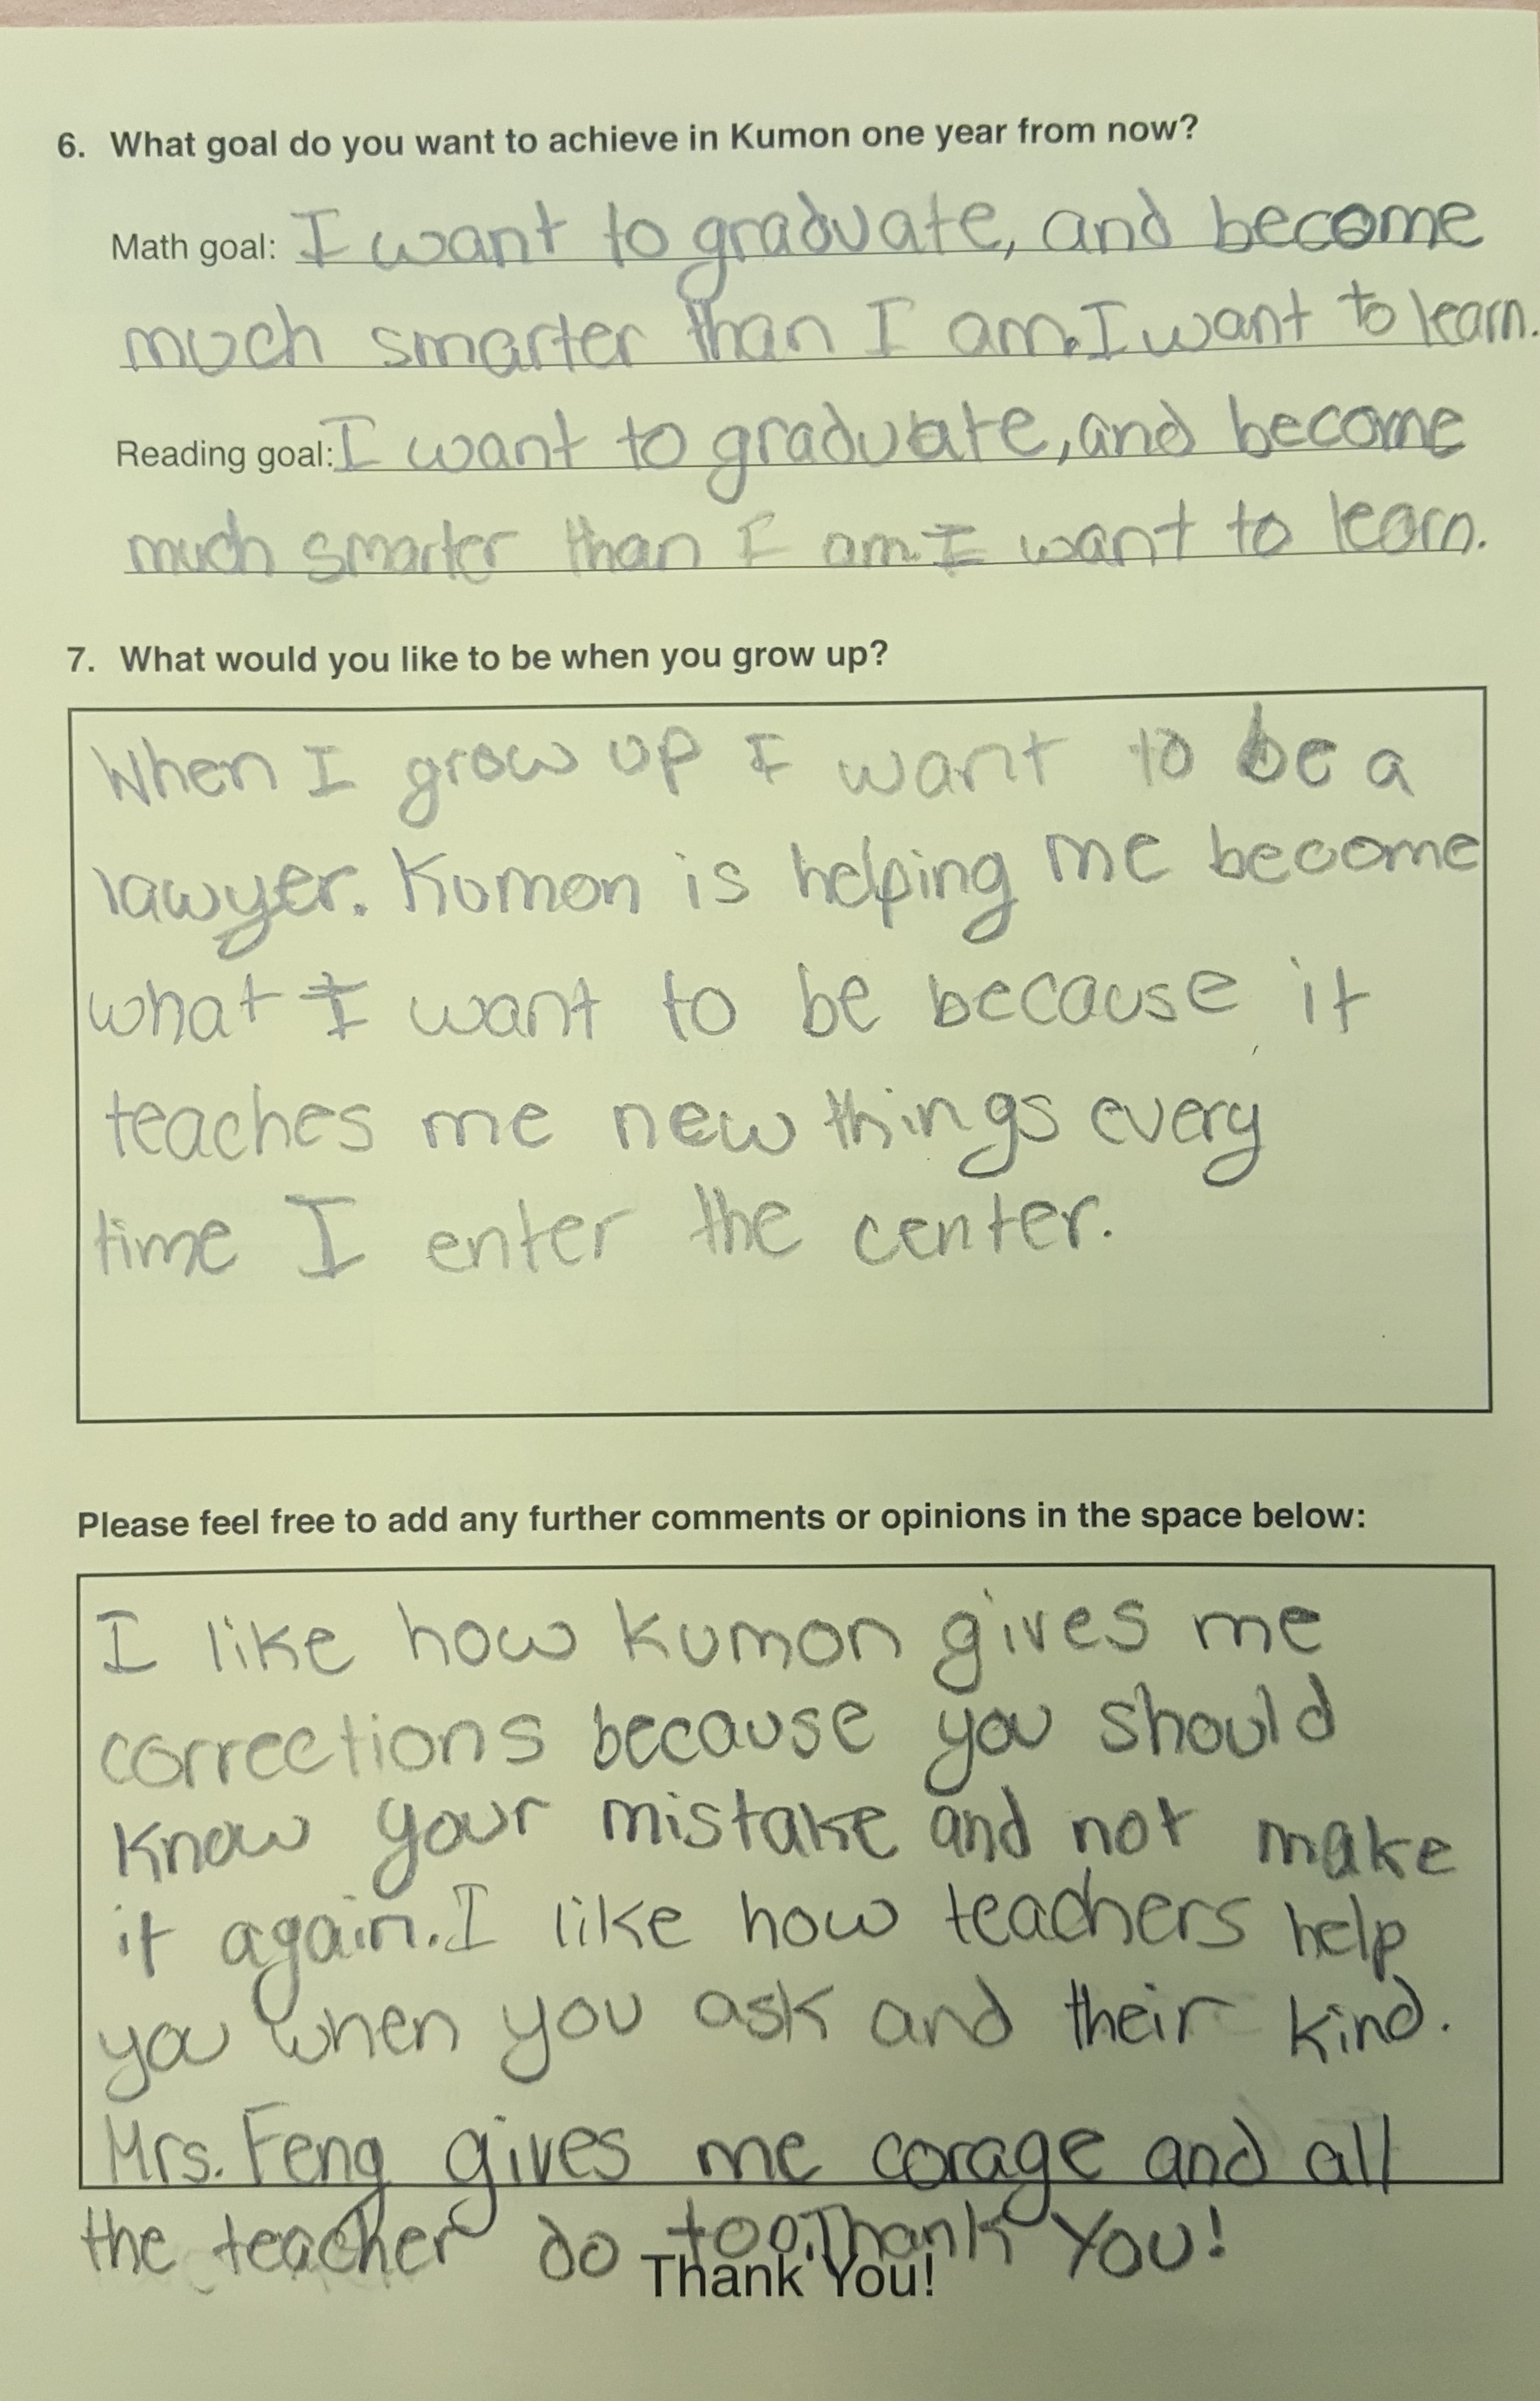 6. What goal do you want to achieve in Kumon one year from now?
Math goal: I want to graduate, and become
much smarter than I am. I want to learn.
Reading goal: I want to graduate, and become
much smarter than I am. I want to learn.
7. What would you like to be when you grow up?
When I grow up I want to be a
lawyer. Kumon is helping me become
what I want to be because it
teaches me new things every
time I enter the center.
Please feel free to add any further comments or opinions in the space below:
I like how Kumon gives me
corrections because you should
know your mistake and not make
it again. I like how teachers help
you when you ask and their kind.
Mrs. Feng gives me corage and all
the teacher do too. Thank You!
Thank You!